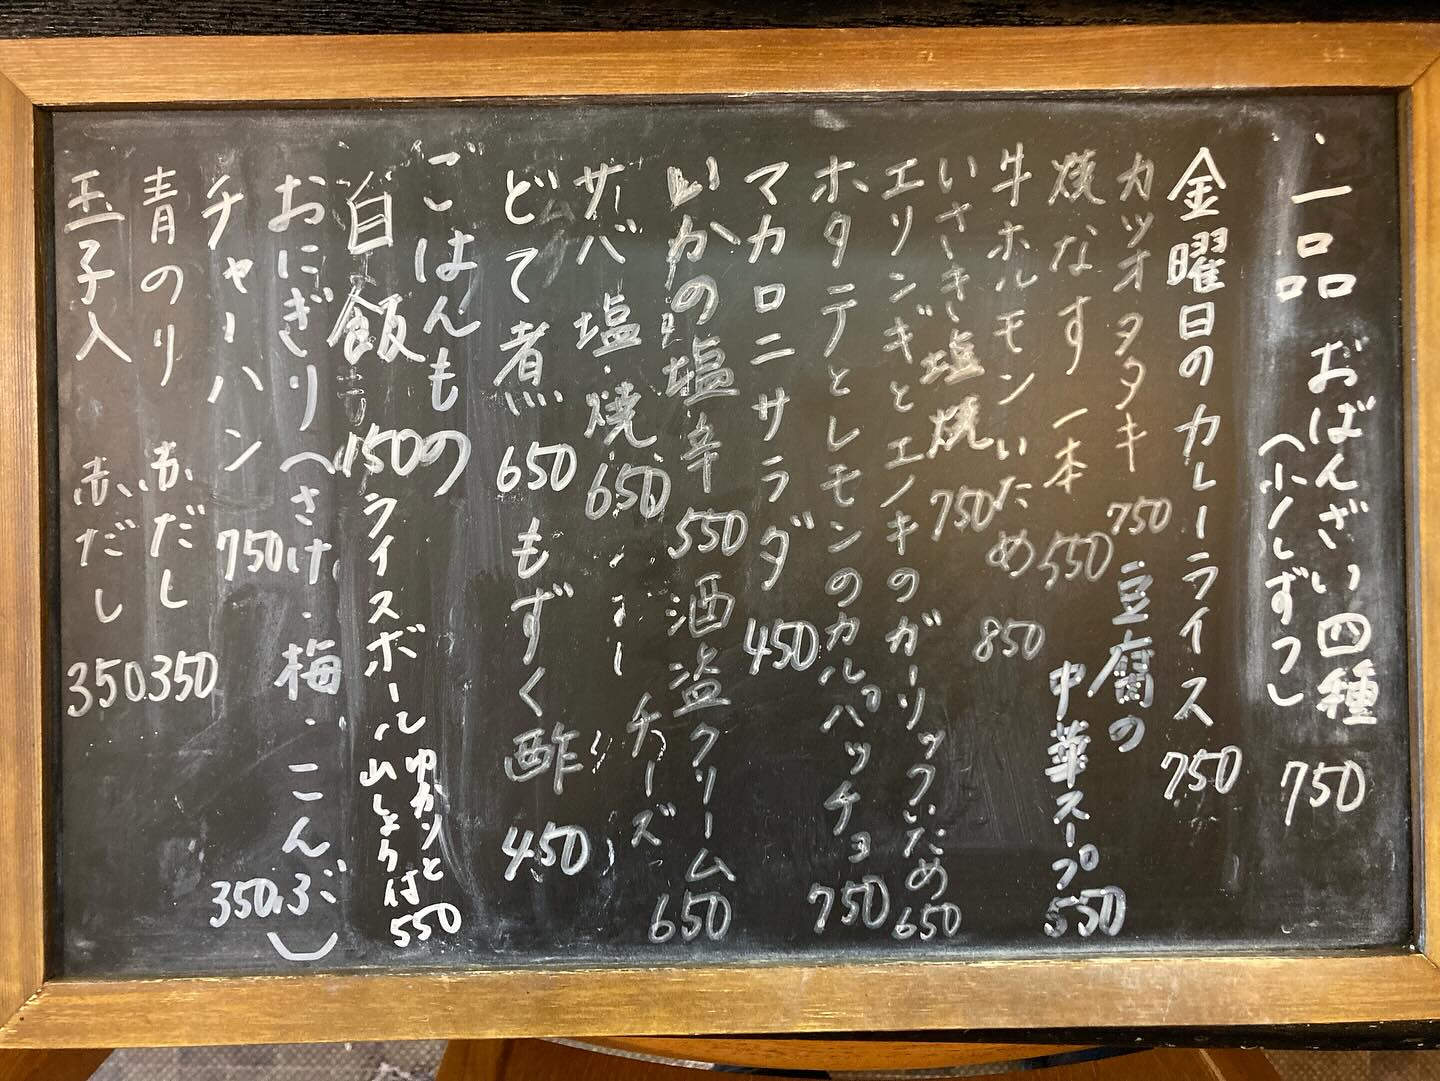 一品 おばんざい四種 750
(少しずつ)
金曜日のカレーライス 750
カツオタタキ 750
豆腐の
中華スープ 550
焼なす 一本 550
牛ホルモンいため 850
いさき塩焼 750
エリンギとエノキのガーリックいため 650
ホタテとレモンのカルパッチョ 750
マカロニサラダ 450
いかの塩辛 550
酒盗クリーム
チーズ 650
サバ塩焼 650
どて煮 650
もずく酢 450
ごはんもの
白飯 150
ライスボール
ゆかりと
山しょう付 550
おにぎり(さけ・梅・こんぶ) 350
チャーハン 750
青のり 赤だし 350
玉子入 赤だし 350